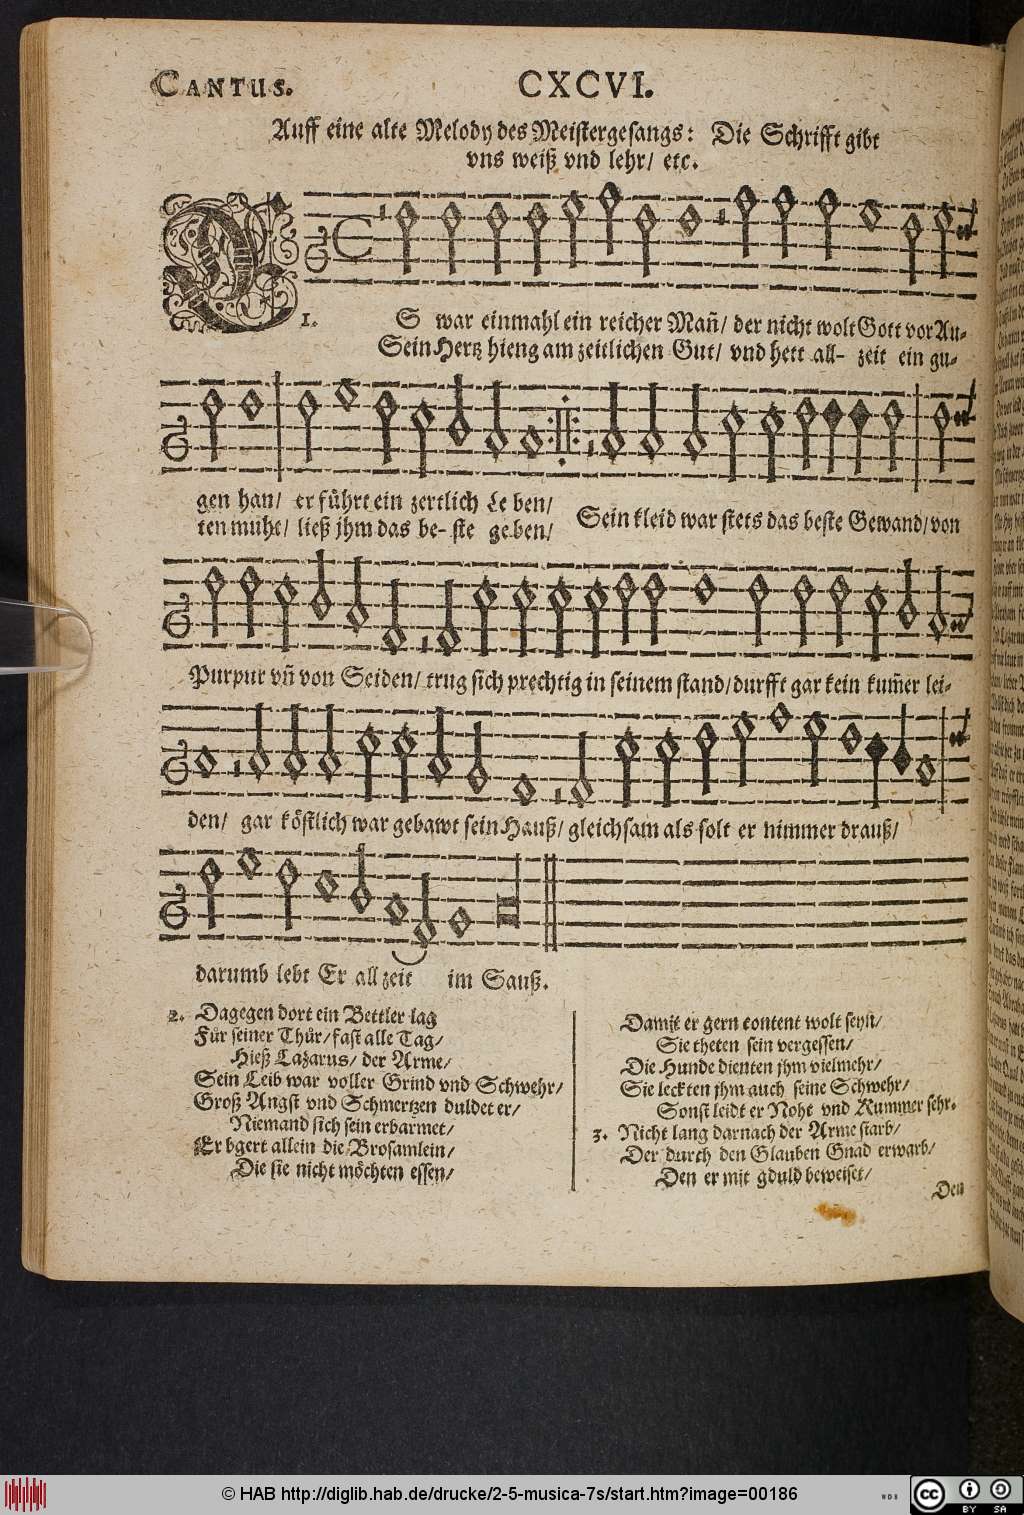 CANTUS.
CXCVI.
Auff eine alte Melody des Meistergesangs: Die Schrifft gibt
vns weiß vnd lehr/ etc.
1. ES war einmahl ein reicher Mañ/ der nicht wolt Gott vor Au-
Sein Hertz hieng am zeitlichen Gut/ vnd hett all- zeit ein gu-
gen han/ er führt ein zertlich Le ben/
ten muht/ ließ jhm das be- ste geben/
Sein kleid war stets das beste Gewand/ von
Purpur vñ von Seiden/ trug sich prechtig in seinem stand/ durfft gar kein kum̃er lei-
den/ gar köstlich war gebawt sein Hauß/ gleichsam als solt er nimmer drauß/
darumb lebt Er all zeit im Sauß.
2. Dagegen dort ein Bettler lag
Für seiner Thür/ fast alle Tag/
Hieß Lazarus/ der Arme/
Sein Leib war voller Grind vnd Schwehr/
Groß Angst vnd Schmertzen duldet er/
Niemand sich sein erbarmet/
Er bgert allein die Brosamlein/
Die sie nicht möchten essen/
Damit er gern content wolt seyn/
Sie theten sein vergessen/
Die Hunde dienten jhm vielmehr/
Sie leckten jhm auch seine Schwehr/
Sonst leidt er Noht vnd Kummer sehr.
3. Nicht lang darnach der Arme starb/
Der durch den Glauben Gnad erwarb/
Den er mit gduld beweiset/
Den
© HAB http://diglib.hab.de/drucke/2-5-musica-7s/start.htm?image=00186
WDB
cc
BY SA